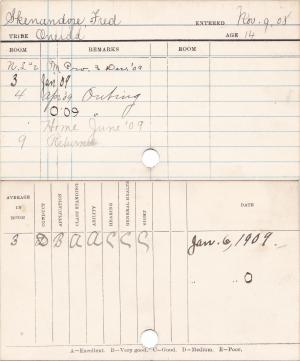 Skenandore, Fred ENTERED Nov. 9, 08
TRIBE Oneida AGE 14
ROOM REMARKS ROOM
N.2"2 M Pro. 3 Dec '09
3 Jan '09
4 Apr 09 Outing
O 09 "
Home June '09
9 Returned
AVERAGE IN ROOM CONDUCT APPLICATION CLASS STANDING ABILITY HEARING GENERAL HEALTH SIGHT DATE
3 D B A A G G G Jan. 6, 1909.
" " O
A—Excellent. B—Very good. C—Good. D—Medium. E—Poor.